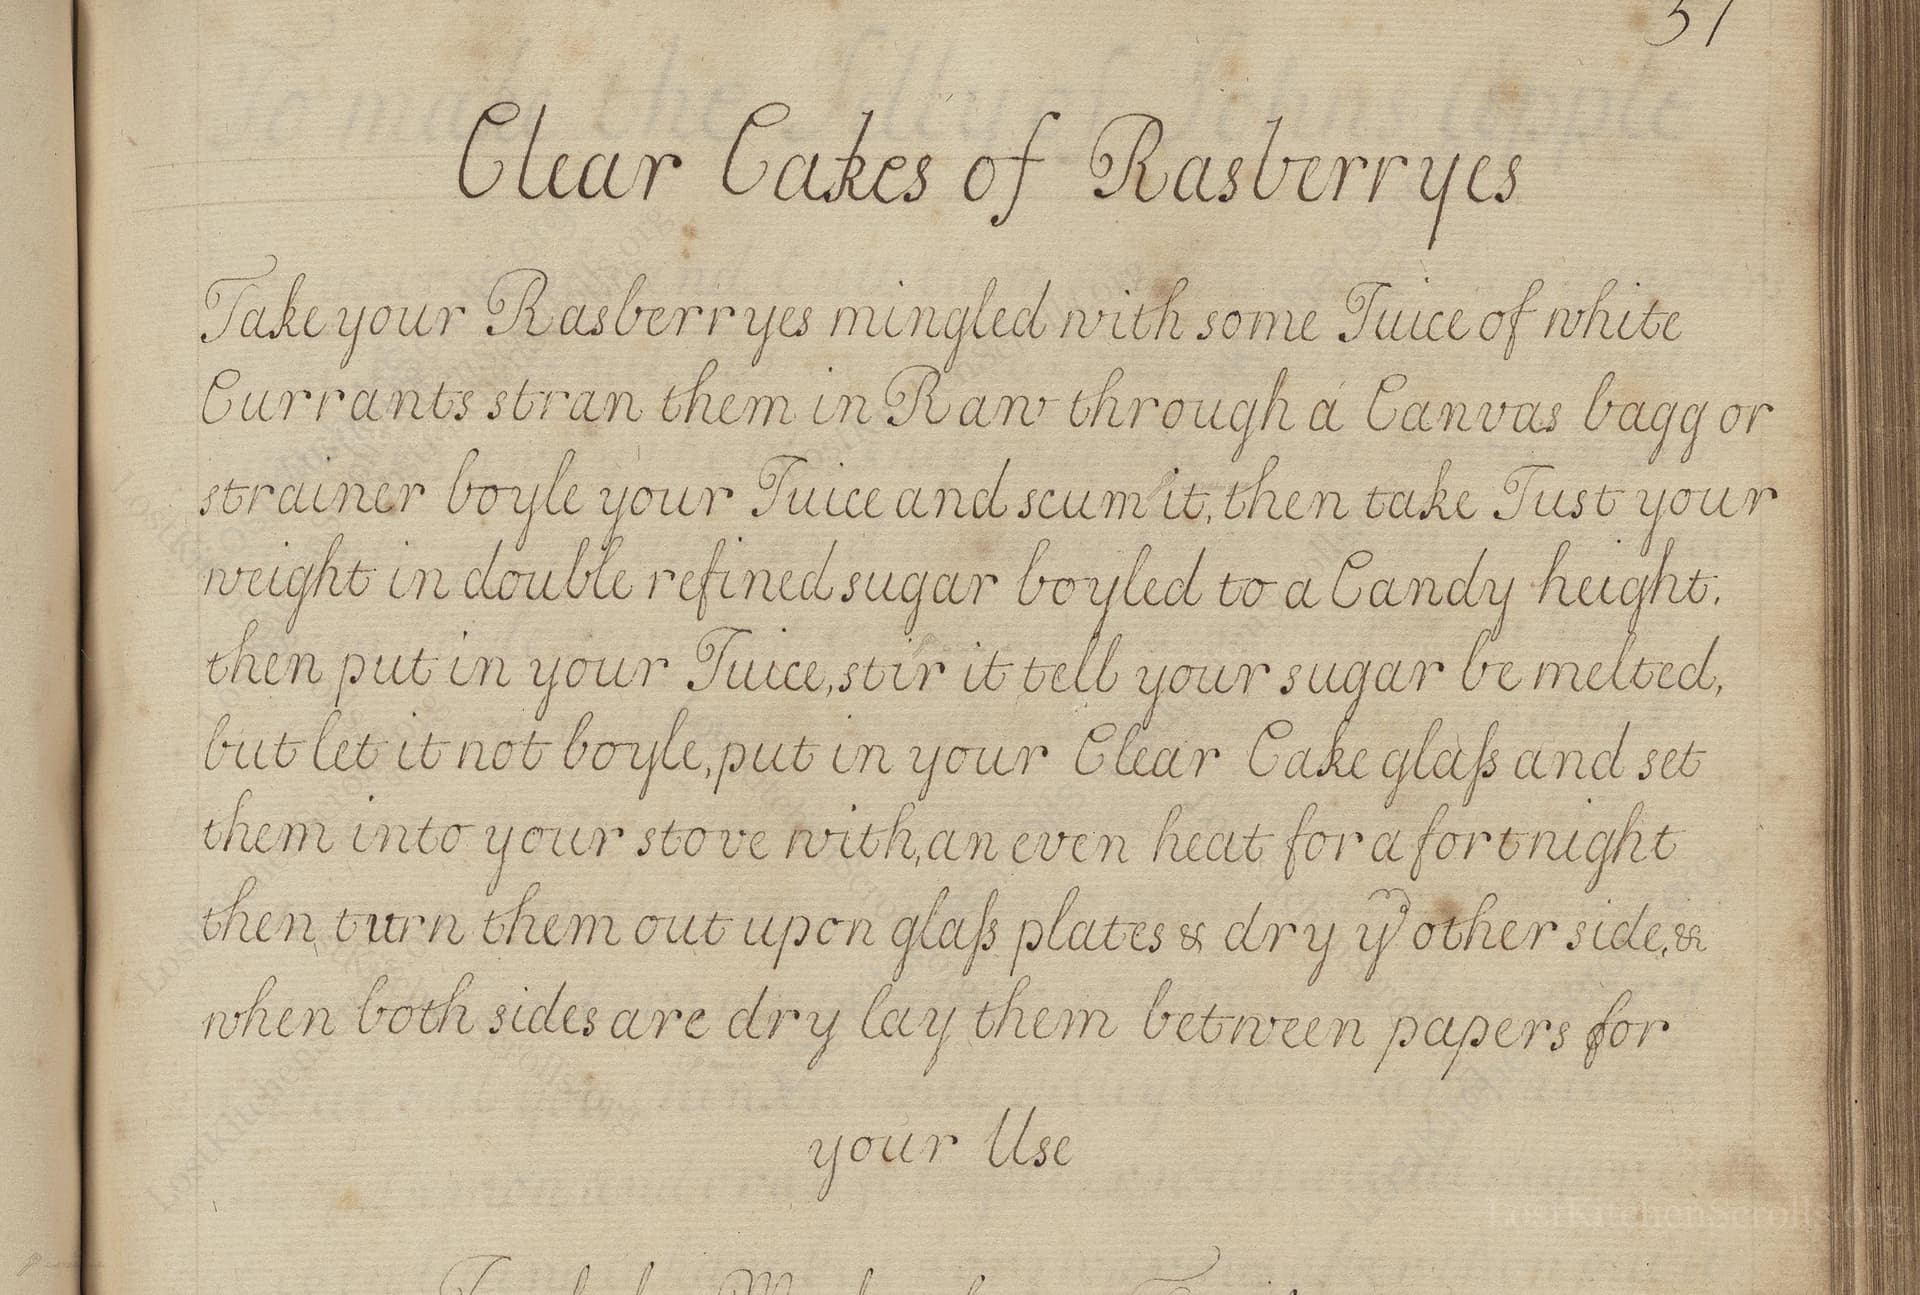 Clear Cakes of Rasberryes
Take your Rasberryes mingled with some Juice of white
Currants stran them in Raw through a Canvas bagg or
strainer boyle your Juice and scum it, then take Just your
weight in double refined sugar boyled to a Candy height.
then put in your Juice, stir it tell your sugar be melted,
but let it not boyle, put in your Clear Cake glaſs and set
them into your stove with, an even heat for a fortnight
then turn them out upon glaſs plates & dry yᵉ other side, &
when both sides are dry lay them between papers for
your Use
LostKitchenScrolls.org